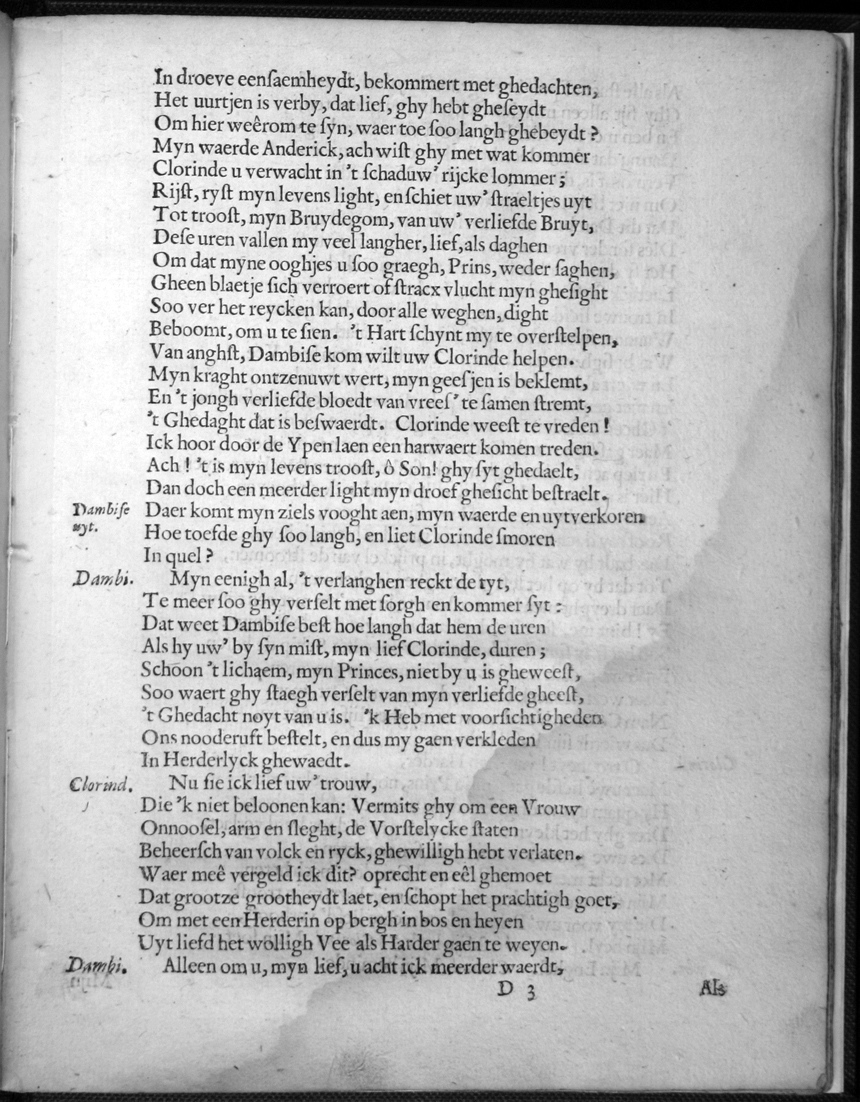 In droeve eenſaemheydt, bekommert met ghedachten,
Het uurtjen is verby, dat lief, ghy hebt gheſeydt
Om hier weêrom te ſyn, waer toe ſoo langh ghebeydt?
Myn waerde Anderick, ach wiſt ghy met wat kommer
Clorinde u verwacht in 't ſchaduw' rijcke lommer;
Rijſt, ryſt myn levens light, en ſchiet uw' ſtraeltjes uyt
Tot trooſt, myn Bruydegom, van uw' verliefde Bruyt,
Deſe uren vallen my veel langher, lief, als daghen
Om dat myne ooghjes u ſoo graegh, Prins, weder ſaghen,
Gheen blaetje ſich verroert of ſtracx vlucht myn gheſight
Soo ver het reycken kan, door alle weghen, dight
Beboomt, om u te ſien. 't Hart ſchynt my te overſtelpen,
Van anghſt, Dambiſe kom wilt uw Clorinde helpen.
Myn kraght ontzenuwt wert, myn geeſjen is beklemt,
En 't jongh verliefde bloedt van vreeſ' te ſamen ſtremt,
't Ghedaght dat is beſwaerdt. Clorinde weeſt te vreden!
Ick hoor door de Ypen laen een harwaert komen treden.
Ach! 't is myn levens trooſt, ô Son! ghy ſyt ghedaelt,
Dan doch een meerder light myn droef gheſicht beſtraelt.
Dambiſe uyt. Daer komt myn ziels vooght aen, myn waerde en uytverkoren
Hoe toefde ghy ſoo langh, en liet Clorinde ſmoren
In quel?
Dambi. Myn eenigh al, 't verlanghen reckt de tyt,
Te meer ſoo ghy verſelt met ſorgh en kommer ſyt:
Dat weet Dambiſe beſt hoe langh dat hem de uren
Als hy uw' by ſyn miſt, myn lief Clorinde, duren;
Schoon 't lichaem, myn Princes, niet by u is gheweeſt,
Soo waert ghy ſtaegh verſelt van myn verliefde gheeſt,
't Ghedacht noyt van u is. 'k Heb met voorſichtigheden
Ons nooderuft beſtelt, en dus my gaen verkleden
In Herderlyck ghewaedt.
Clorind. Nu ſie ick lief uw' trouw,
Die 'k niet beloonen kan: Vermits ghy om een Vrouw
Onnooſel, arm en ſleght, de Vorſtelycke ſtaten
Beheerſch van volck en ryck, ghewilligh hebt verlaten.
Waer meê vergeld ick dit? oprecht en eêl ghemoet
Dat grootze grootheydt laet, en ſchopt het prachtigh goet,
Om met een Herderin op bergh in bos en heyen
Uyt liefd het wolligh Vee als Harder gaen te weyen.
Dambi. Alleen om u, myn lief, u acht ick meerder waerdt,
D 3 Als